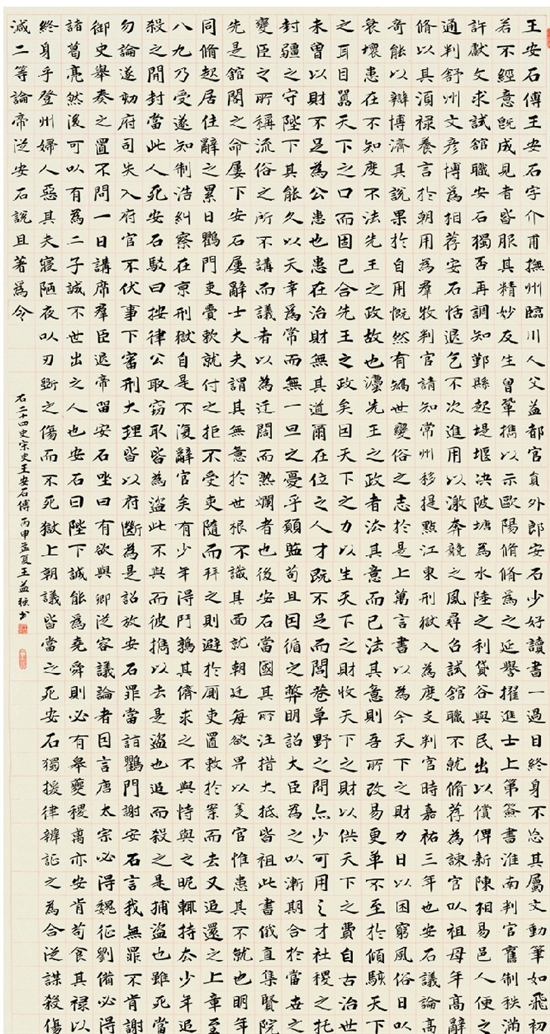 王安石傳王安石字介甫撫州臨川人父益都官員外郎安石少好讀書一過目終身不忘其文動筆如飛初
若不經意既成見者皆服其精妙友生曾鞏攜以示歐陽脩脩為之延譽擢進士上第簽書淮南判官舊制秩滿
許獻文求試館職安石獨否再調知鄞縣起堤堰決陂塘為水陸之利貸谷與民出以償俾新陳相易邑人便之
通判舒州文彥博為相荐安石恬退乞不次進用以激奔競之風尋召試館職不就脩荐為諫官以祖母年高辭
脩以其須祿養言於朝用為羣牧判官請知常州移提點江東刑獄入為度支判官時嘉祐三年也安石議論高
奇能以辯博濟其說果於自用慨然有矯世變俗之志於是上萬言書以為今天下之財力日以困窮風俗日以
衰壞患在不知度不法先王之政故也灋先王之政者法其意而已法其意則吾所改易更革不至於傾駭天下
之耳目囂天下之口而固已合先王之政矣因天下之力以生天下之財收天下之財以供天下之費自古治世
未曾以財不足為公患也患在治財無其道爾在位之人才既不足而閭巷草野之間亦少可用之才社稷之托
封疆之守陛下其能久以天幸為常而無一旦之憂乎願監苟且因循之弊明詔大臣為之以漸期合於當世之
變臣之所稱流俗之所不講而議者以為迂闊而熟爛者也後安石當國其所注措大抵皆祖此書俄直集賢院
先是館閣之命屢下安石屢辭士大夫謂其無意於世恨不識其面就朝廷每欲畀以美官惟患其不就也明年
同脩起居住辭之累日鸚門吏賫敕就付之拒不受吏隨而拜之則避於廁吏置敕於案而去又追還之上章至
八九乃受遂知制誥糾察在京刑獄自是不復辭官矣有少年得鬥鶉其儕求之不與恃與之昵輒持去少年追
殺之開封當此人死安石駁曰按律公取竊取皆為盜此不與而彼攜以去是盜也追而殺之是捕盜也雖死當
勿論遂劾府司失入府官不伏事下審刑大理皆以府斷為是詔放安石罪當詣鸚門謝安石言我無罪不肯謝
御史舉奏之置不問一日講席羣臣退帝留安石坐曰有欲與卿從容議論者因言唐太宗必得魏征劉備必得
諸葛亮然後可以有為二子誠不世出之人也安石曰陛下誠能為堯舜則必有皋夔稷卨亦安肯苟食其祿以
終身乎登州婦人惡其夫寢陋夜以刃斲之傷而不死獄上朝議皆當之死安石獨援律辨証之為合從謀殺傷
減二等論帝從安石說且著為令
右二十四史宋史王安石傳丙申孟夏王益秋書